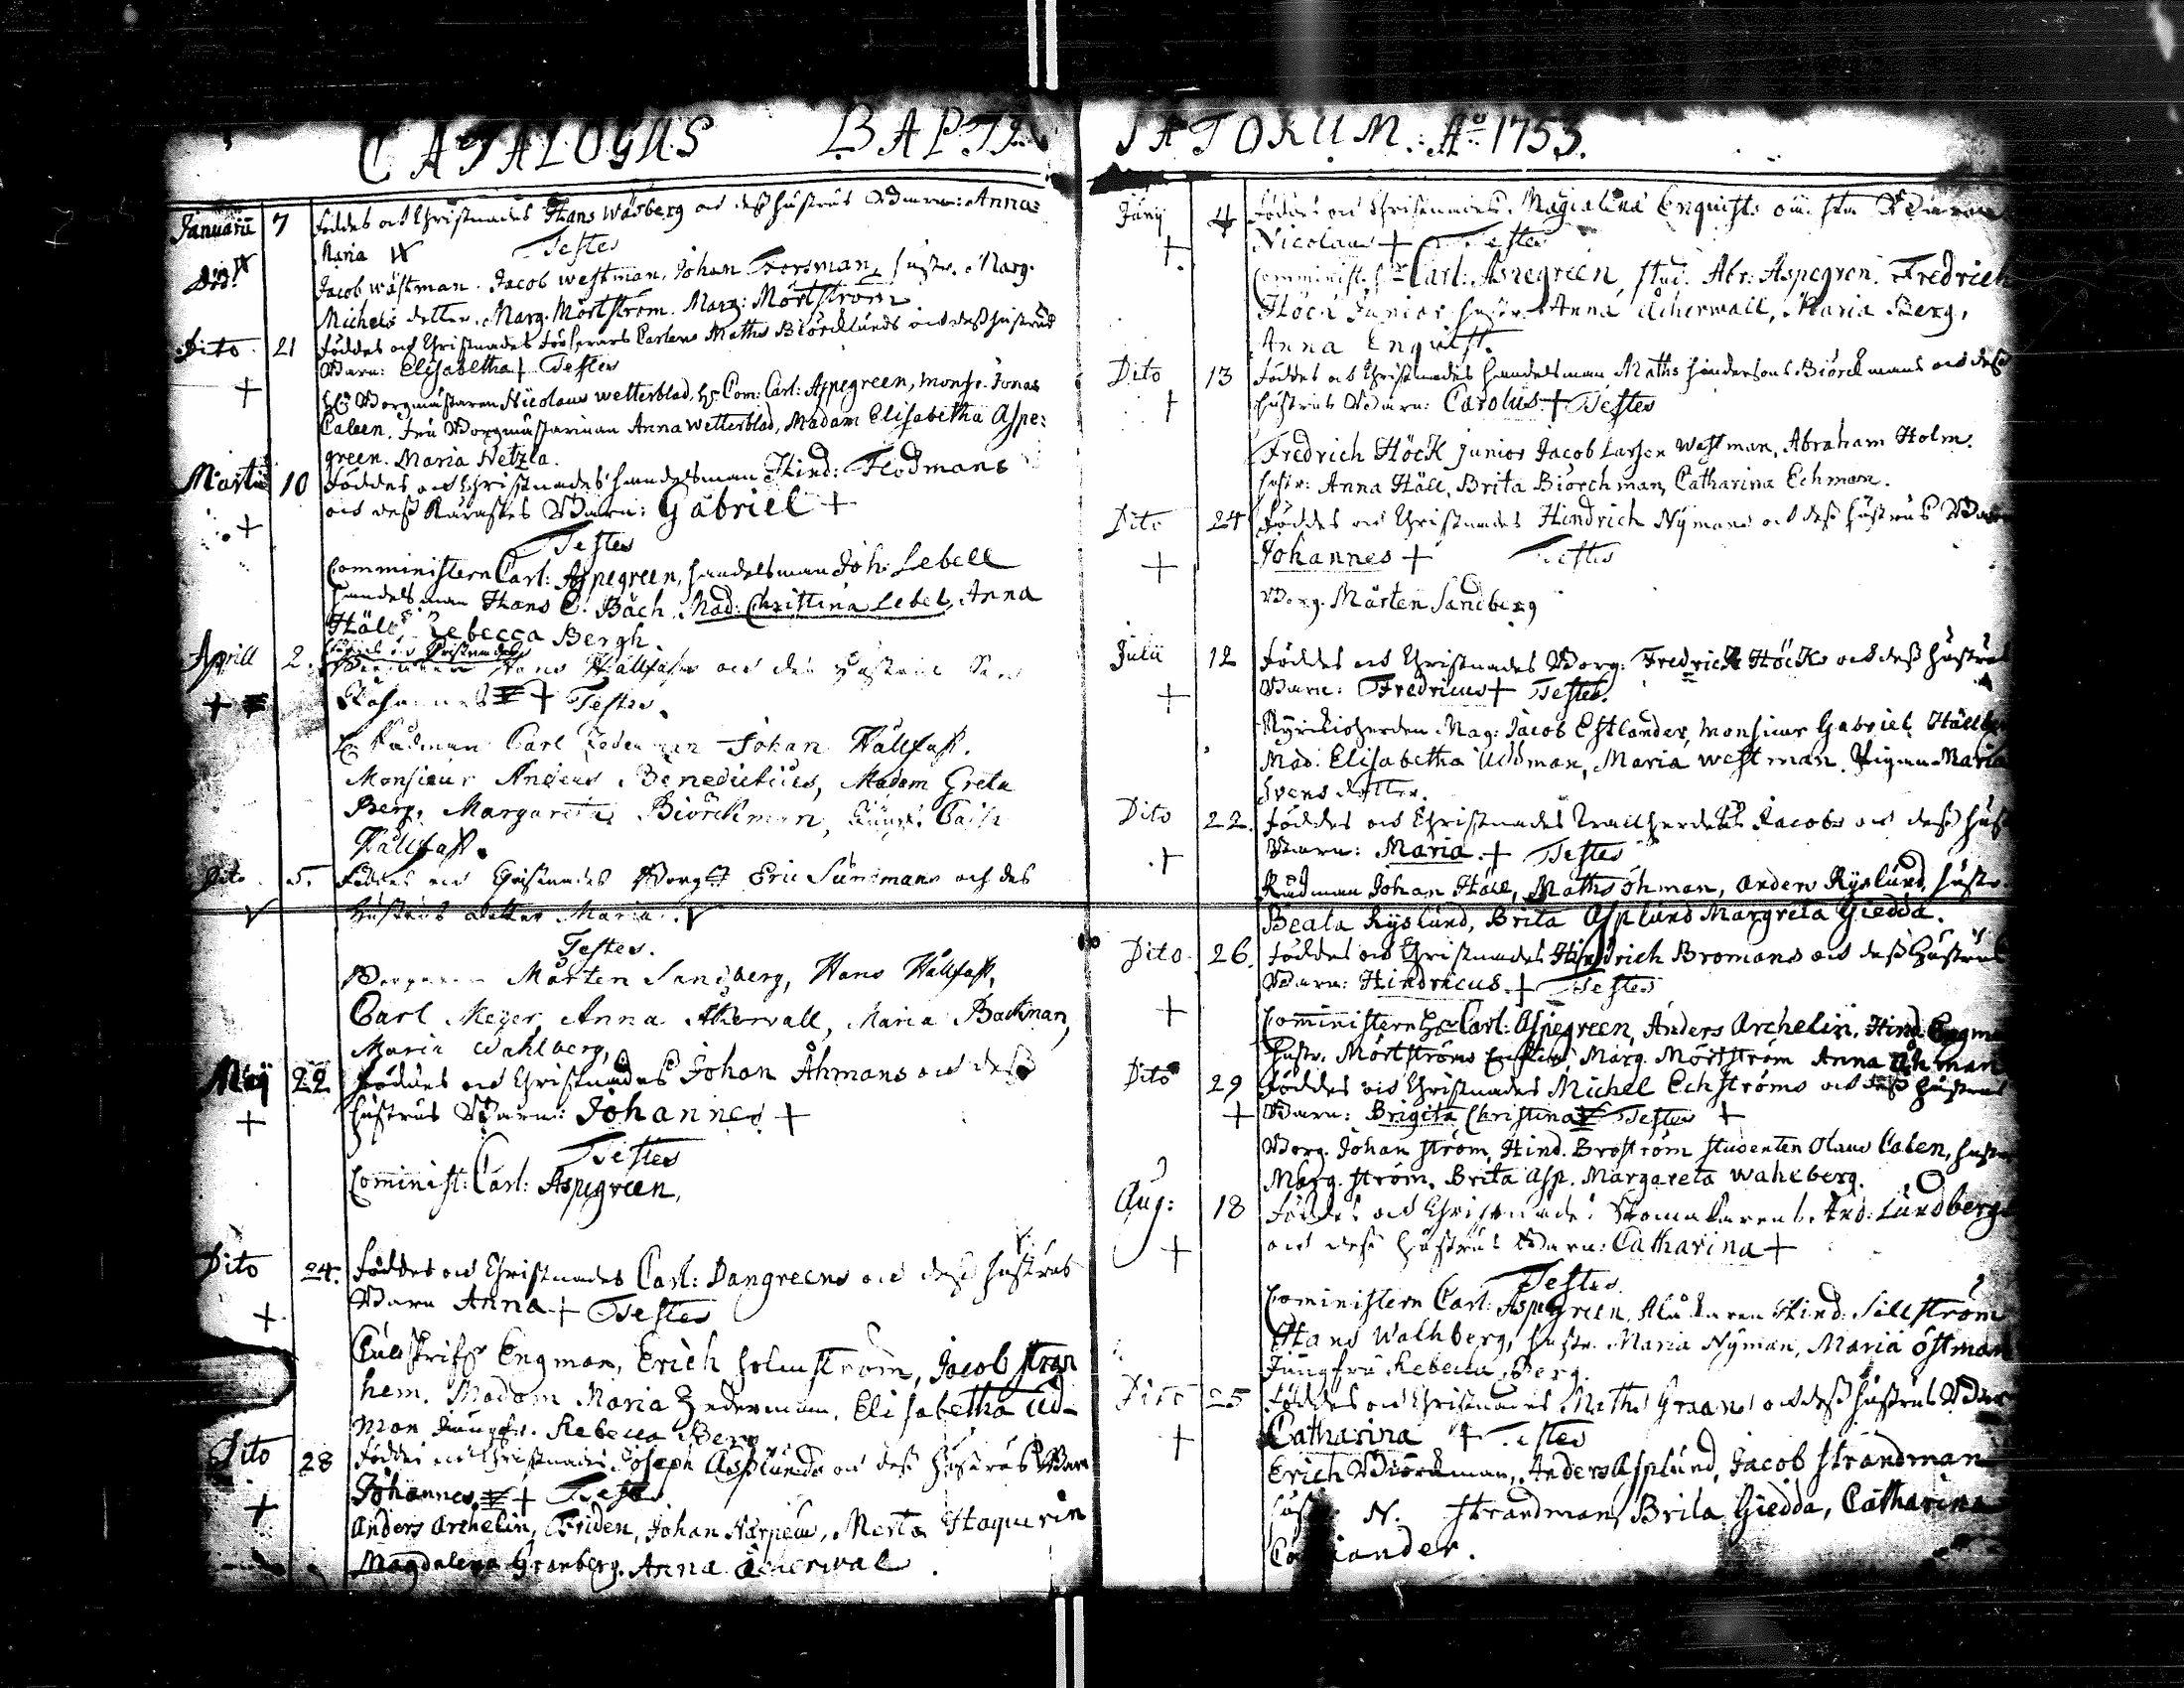 CATALOGUS BAPTI
Januarii 7 föddes och Christnades Hans Wäsberg och deß hustrus Barn: Anna
Maria
Testes
Jacob wästman. Jacob westman. Johan Forsman, hustr. Marg.
Michels dotter. Marg. Mörtström. Marg: Mörtström
Dito 21 föddes och Christnades Maths Biörcklunds och deß hustrus
Barn: Elisabetha + Testes
Borgmästaren Nicolaus wetterblad, Hr Com: Carl: Aspegreen, Monsr. Jonas
Caleen. Fru Borgmästarinnan Anna Wetterblad, Madam Elisabetha Aspe:
green. Maria Netzla.
Martii 10 Föddes och Christnades handelsman Hind: Flodmans
och deß Kärastes Barn: Gabriel +
Testes
Comministern Carl: Aspegreen, handelsman Joh: Lebell
handelsman Hans C. Bäck. Mad: Christina Lebel, Anna
Häll, Rebecca Bergh.
Aprill 2. föddes och Christnades
Hans Hällfast och des
Johannes + Testes.
Rådman Carl Johan Hällfast.
Monsieur Anders Benedictius, Madam Greta
Berg, Margareta Biörckman, Jungf. Cath
Hällfast.
Dito 5. Föddes och Christnades Borg Eric Sundmans och des
hustrus dotter Maria.
Testes.
Borgaren Mårten Sandberg, Hans Hällfast,
Carl Meyer, Anna Åkervall, Maria Backman,
Maria Wahlberg,
Maij 22 föddes och Christnades Johan Åhmans och deß
hustrus Barn: Johannes +
Testes
Comminist: Carl: Aspegreen.
Dito 24. föddes och Christnades Carl: Dangreens och deß hustrus
Barn Anna + Testes
Engman, Erich Holmström, Jacob
hem. Madam Maria Zederman, Elisabetha Ud-
man Jungfr. Rebecca Berg
Dito 28 föddes och Christnades Joseph Asplunds och deß hustrus Barn
Johannes + Testes
Anders Archelin, Friden, Johan Härpeus, Merta Haqurin
Magdalena Granberg. Anna Åcherwal.
SATORUM: Ao 1753.
Junij 4 föddes och Christnades Magdalena Enquists
Nicolaus + Testes
Comminist. Hr Carl: Aspegreen, stud. Abr: Aspegren. Fredrich
Höck Junior hustr. Anna Åcherwall, Maria Berg,
Anna Enqvist.
Dito 13 föddes och Christnades handelsman Maths Hindersons Biörckmans och deß
hustrus Barn: Carolus + Testes
Fredrich Höck junior Jacob Larson Westman, Abraham Holm.
hustr: Anna Häll, Brita Biörchman, Catharina Echman.
Dito 24 föddes och Christnades Hindrich Nÿmans och deß hustrus Barn
Johannes + Testes
Borg. Mårten Sandberg
Julii 12 föddes och Christnades Borg: Fredrich Höcks och deß hustrus
Barn: Fredricus + Testes.
Kyrckioherden Mag: Jacob Estlander, Monsieur Gabriel Häll
Mad: Elisabetha Uddman, Maria westman. Pigan Maria
Svens dotter.
Dito 22. föddes och Christnades Jacobs och deß hust
Barn: Maria + Testes
Rådman Johan Häll, Maths öhman, Anders Ryslund, hustr.
Beata Ryslund, Brita Asplund Margreta Giedda.
Dito 26. föddes och Christnades Hindrich Bromans och deß Hustrus
Barn: Hindricus + Testes
Comministern Hr Carl: Aspegreen, Anders Archelin, Hind. Engman
hustr. Mörtströms Marg. Mörtström Anna Åhman
Dito 29 föddes och Christnades Michel Echströms och deß hustrus
+ Barn: Brigita Christina Testes +
Borg. Johan ström, Hind. Broström studenten Olaus Calen, hustr
Marg. ström. Brita Asp. Margareta Wahlberg.
Aug: 18 föddes och Christnades Skomakarens And: Lundbergs
och deß hustrus Barn: Catharina +
Testes
Cominístern Carl: Aspegreen, Hind: Sillström
Hans Walhberg, hustr. Maria Nyman, Maria östman
Jungfru Rebecca Berg.
Dito 25 föddes och Christnades Math. Graans och deß hustrus Barn
Catharina + Testes
Erich Biörkman, Anders Asplund, Jacob strandman
hustr N. strandman, Brita Giedda, Catharina